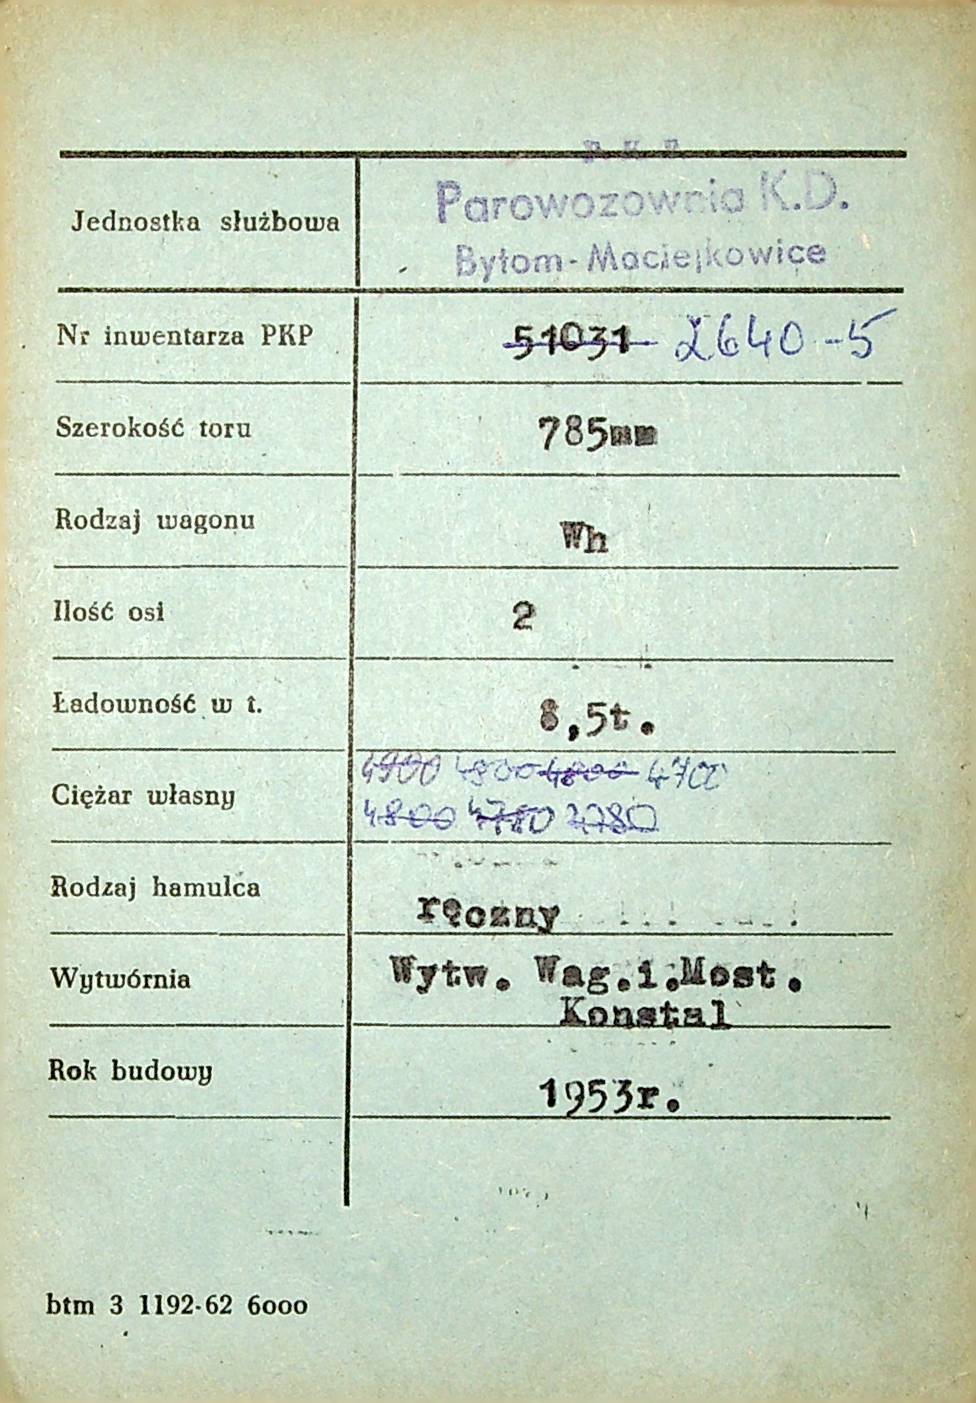 P.K.P.
Jednostka służbowa Parowozownia K.D.
Bytom-Maciejkowice
Nr inwentarza PKP 51031 2640-5
Szerokość toru 785mm
Rodzaj wagonu Wh
Ilość osi 2
Ładowność w t. 8,5t.
4900 4800 4800 4700
Ciężar własny
4800 4780 4780
Rodzaj hamulca ręczny
Wytwórnia Wytw. Wag.i.Most.
Konstal
Rok budowy 1953r.
btm 3 1192-62 6000